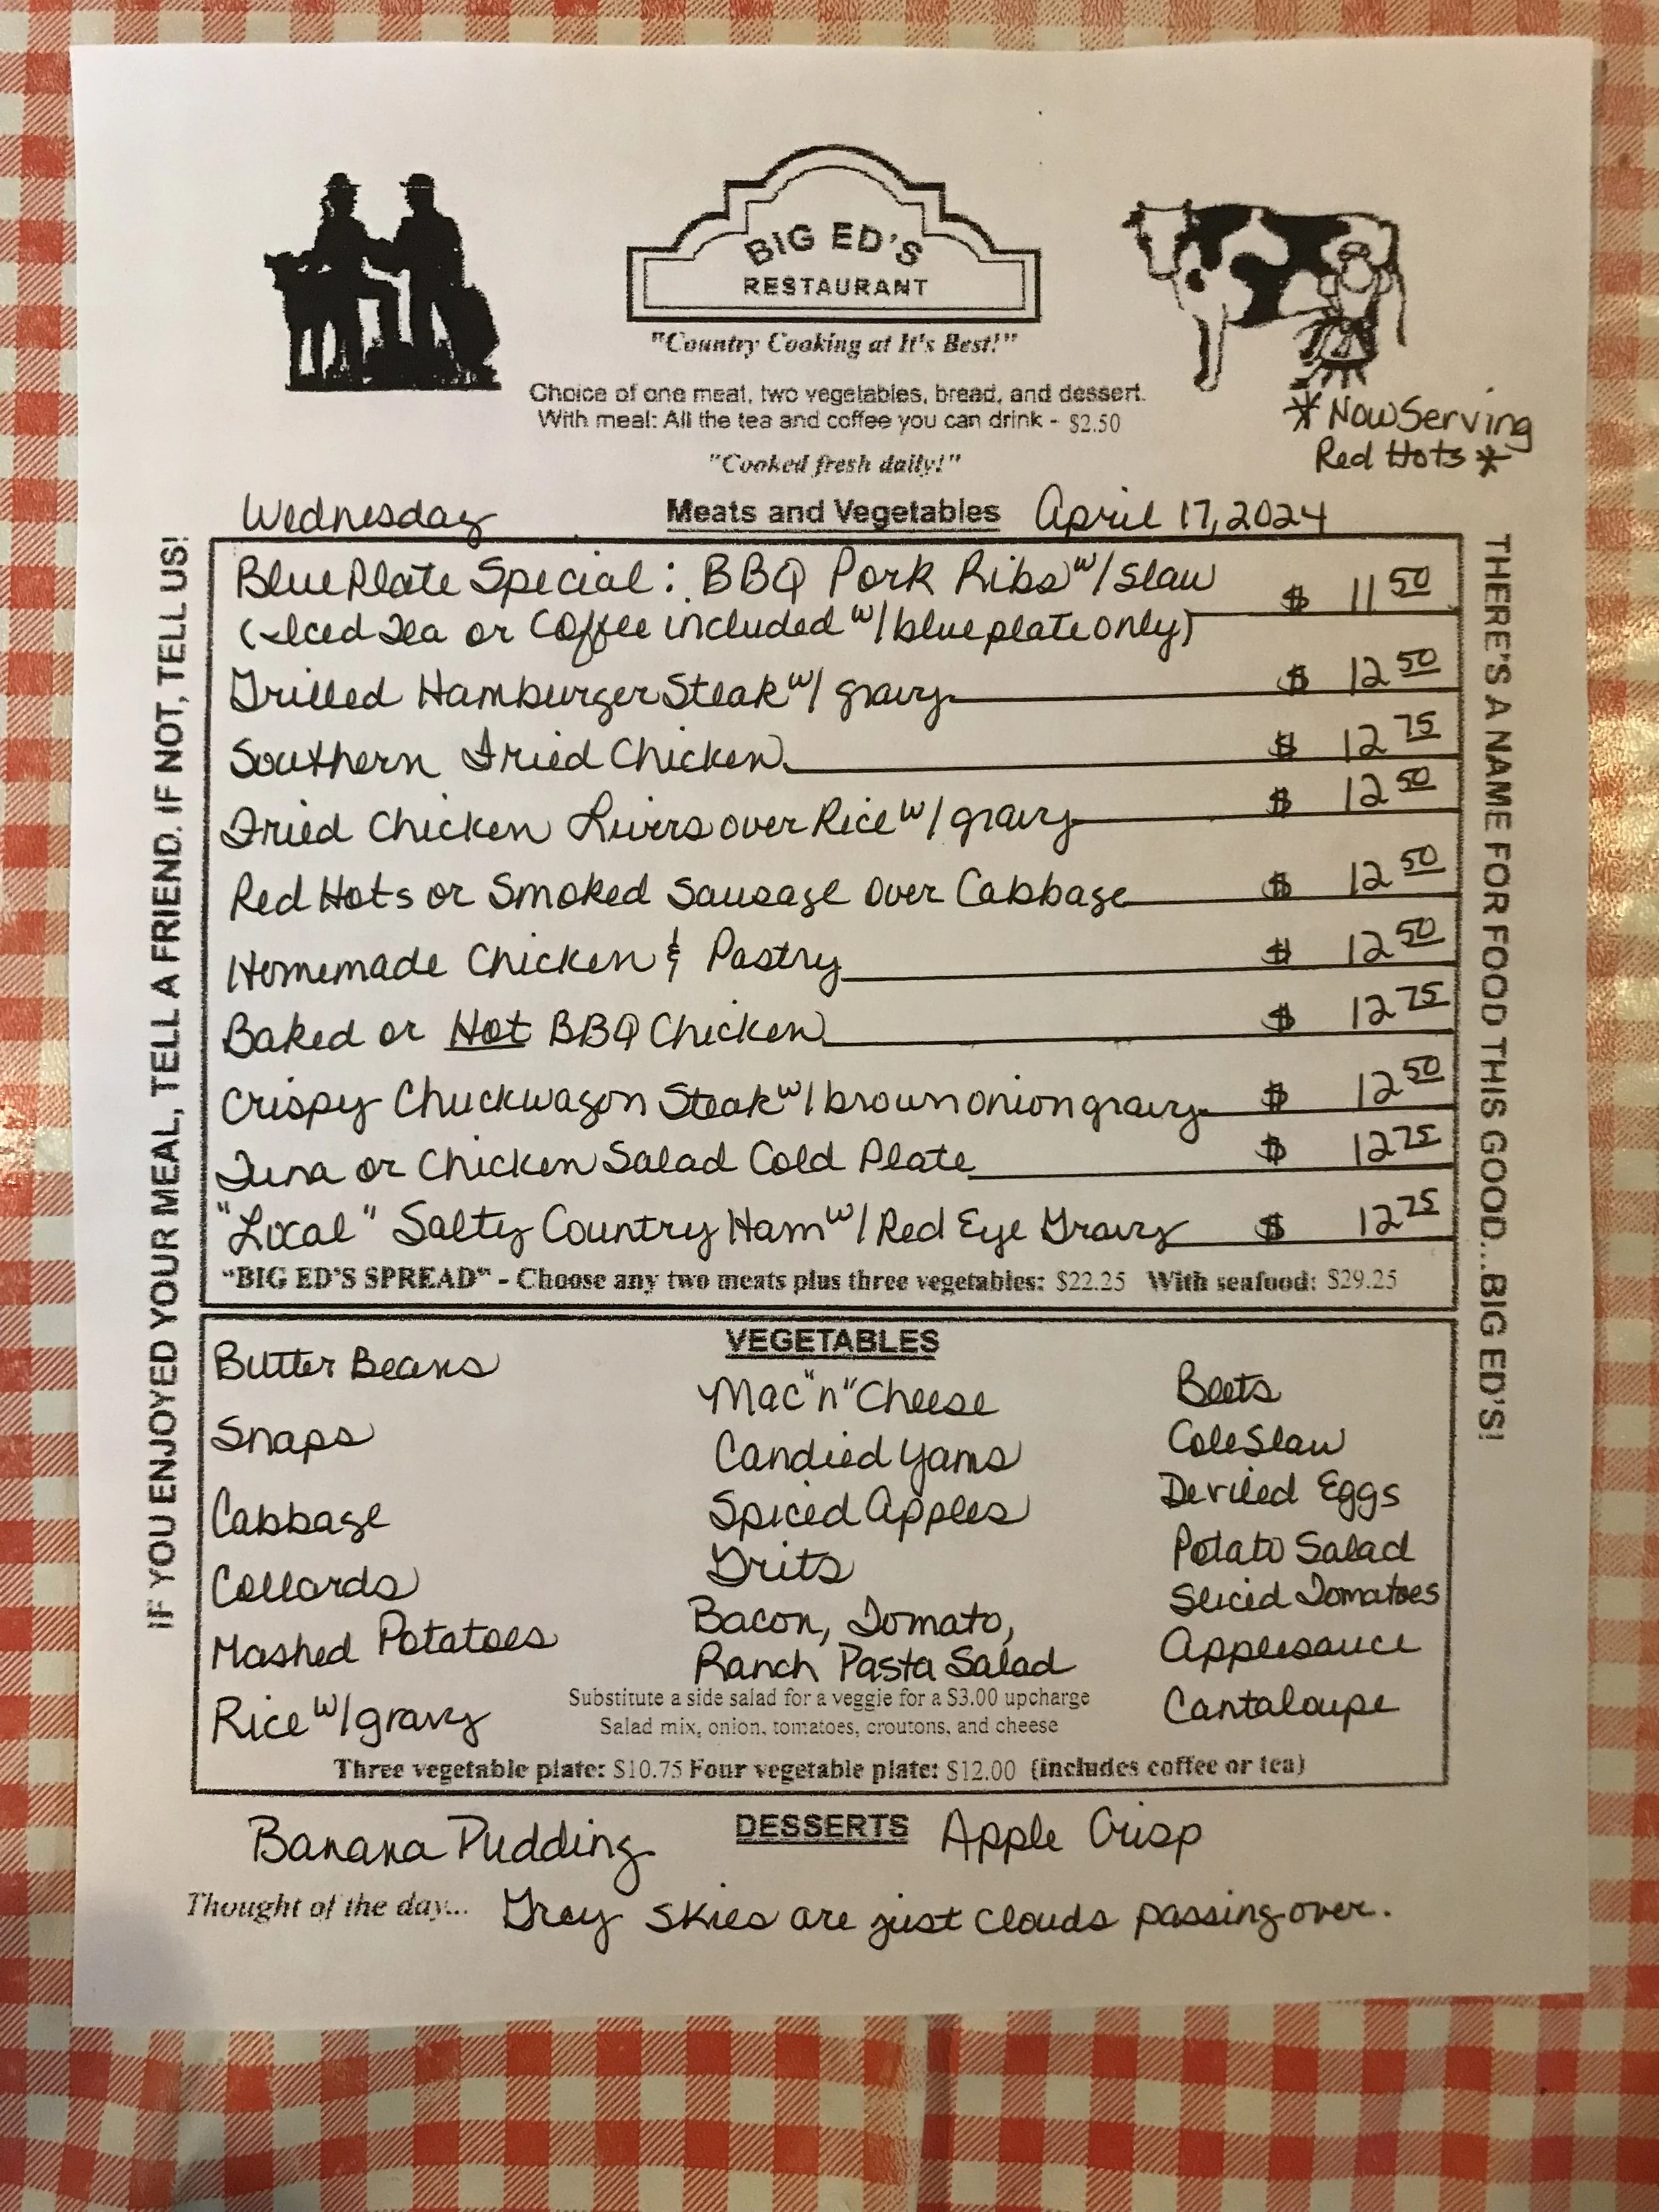 BIG ED'S
RESTAURANT
"Country Cooking at It's Best!"
Choice of one meat, two vegetables, bread, and dessert.
With meal: All the tea and coffee you can drink - $2.50
"Cooked fresh daily!"
* Now Serving
Red Hots *
Wednesday Meats and Vegetables April 17, 2024
IF YOU ENJOYED YOUR MEAL, TELL A FRIEND. IF NOT, TELL US!
Blue Plate Special: BBQ Pork Ribs w/ slaw $ 11 50
(Iced Tea or Coffee included w/ blue plate only)
Grilled Hamburger Steak w/ gravy $ 12 50
Southern Fried Chicken $ 12 75
Fried Chicken Livers over Rice w/ gravy $ 12 50
Red Hots or Smoked Sausage over Cabbage $ 12 50
Homemade Chicken & Pastry $ 12 50
Baked or Hot BBQ Chicken $ 12 75
Crispy Chuckwagon Steak w/ brown onion gravy $ 12 50
Tuna or Chicken Salad Cold Plate $ 12 75
"Local" Salty Country Ham w/ Red Eye Gravy $ 12 75
"BIG ED'S SPREAD" - Choose any two meats plus three vegetables: $22.25 With seafood: $29.25
THERE'S A NAME FOR FOOD THIS GOOD...BIG ED'S!
VEGETABLES
Butter Beans
Snaps
Cabbage
Collards
Mashed Potatoes
Rice w/ gravy
Mac "n" Cheese
Candied Yams
Spiced Apples
Grits
Bacon, Tomato,
Ranch Pasta Salad
Beets
Cole Slaw
Deviled Eggs
Potato Salad
Sliced Tomatoes
Applesauce
Cantaloupe
Substitute a side salad for a veggie for a $3.00 upcharge
Salad mix, onion, tomatoes, croutons, and cheese
Three vegetable plate: $10.75 Four vegetable plate: $12.00 (includes coffee or tea)
Banana Pudding DESSERTS Apple Crisp
Thought of the day... Gray skies are just clouds passing over.